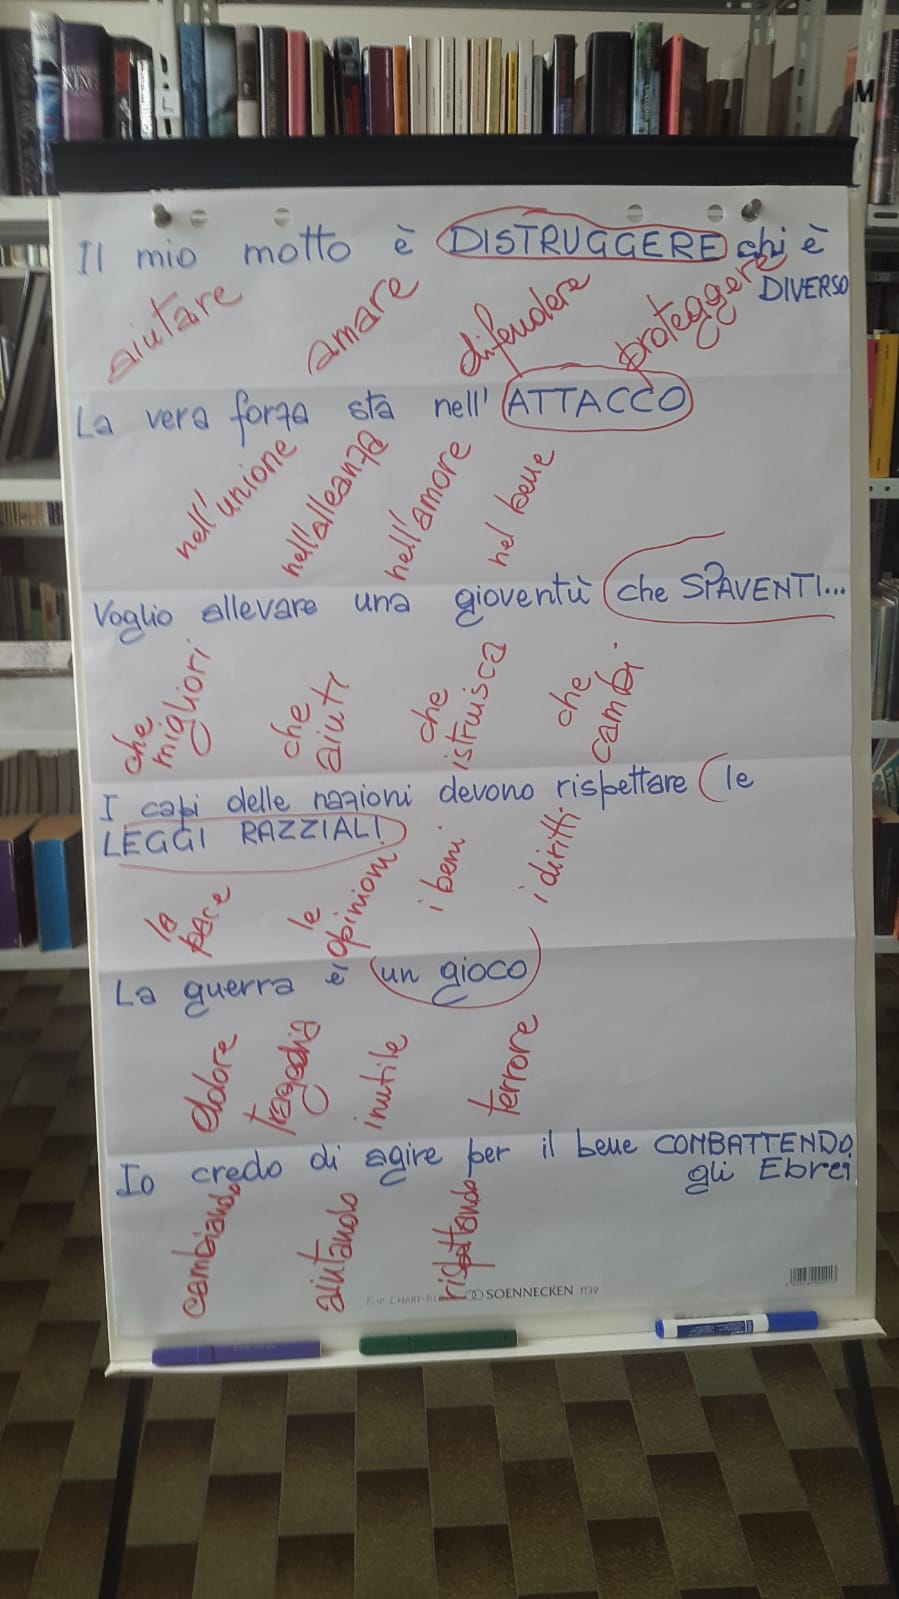 KING
M
Il mio motto è DISTRUGGERE chi è
DIVERSO
aiutare amare difendere proteggere
La vera forza sta nell' ATTACCO
nell'unione nell'alleanza nell'amore nel bene
Voglio allevare una gioventù che SPAVENTI...
che migliori che aiuti che istruisca che cambi.
I capi delle nazioni devono rispettare le
LEGGI RAZZIALI
la pace le opinioni i beni. i diritti.
La guerra è un gioco
dolore tragedia inutile terrore
Io credo di agire per il bene COMBATTENDO
gli Ebrei
cambiando aiutando rispettando
FLIP-CHART-BLOCK SOENNECKEN 1139